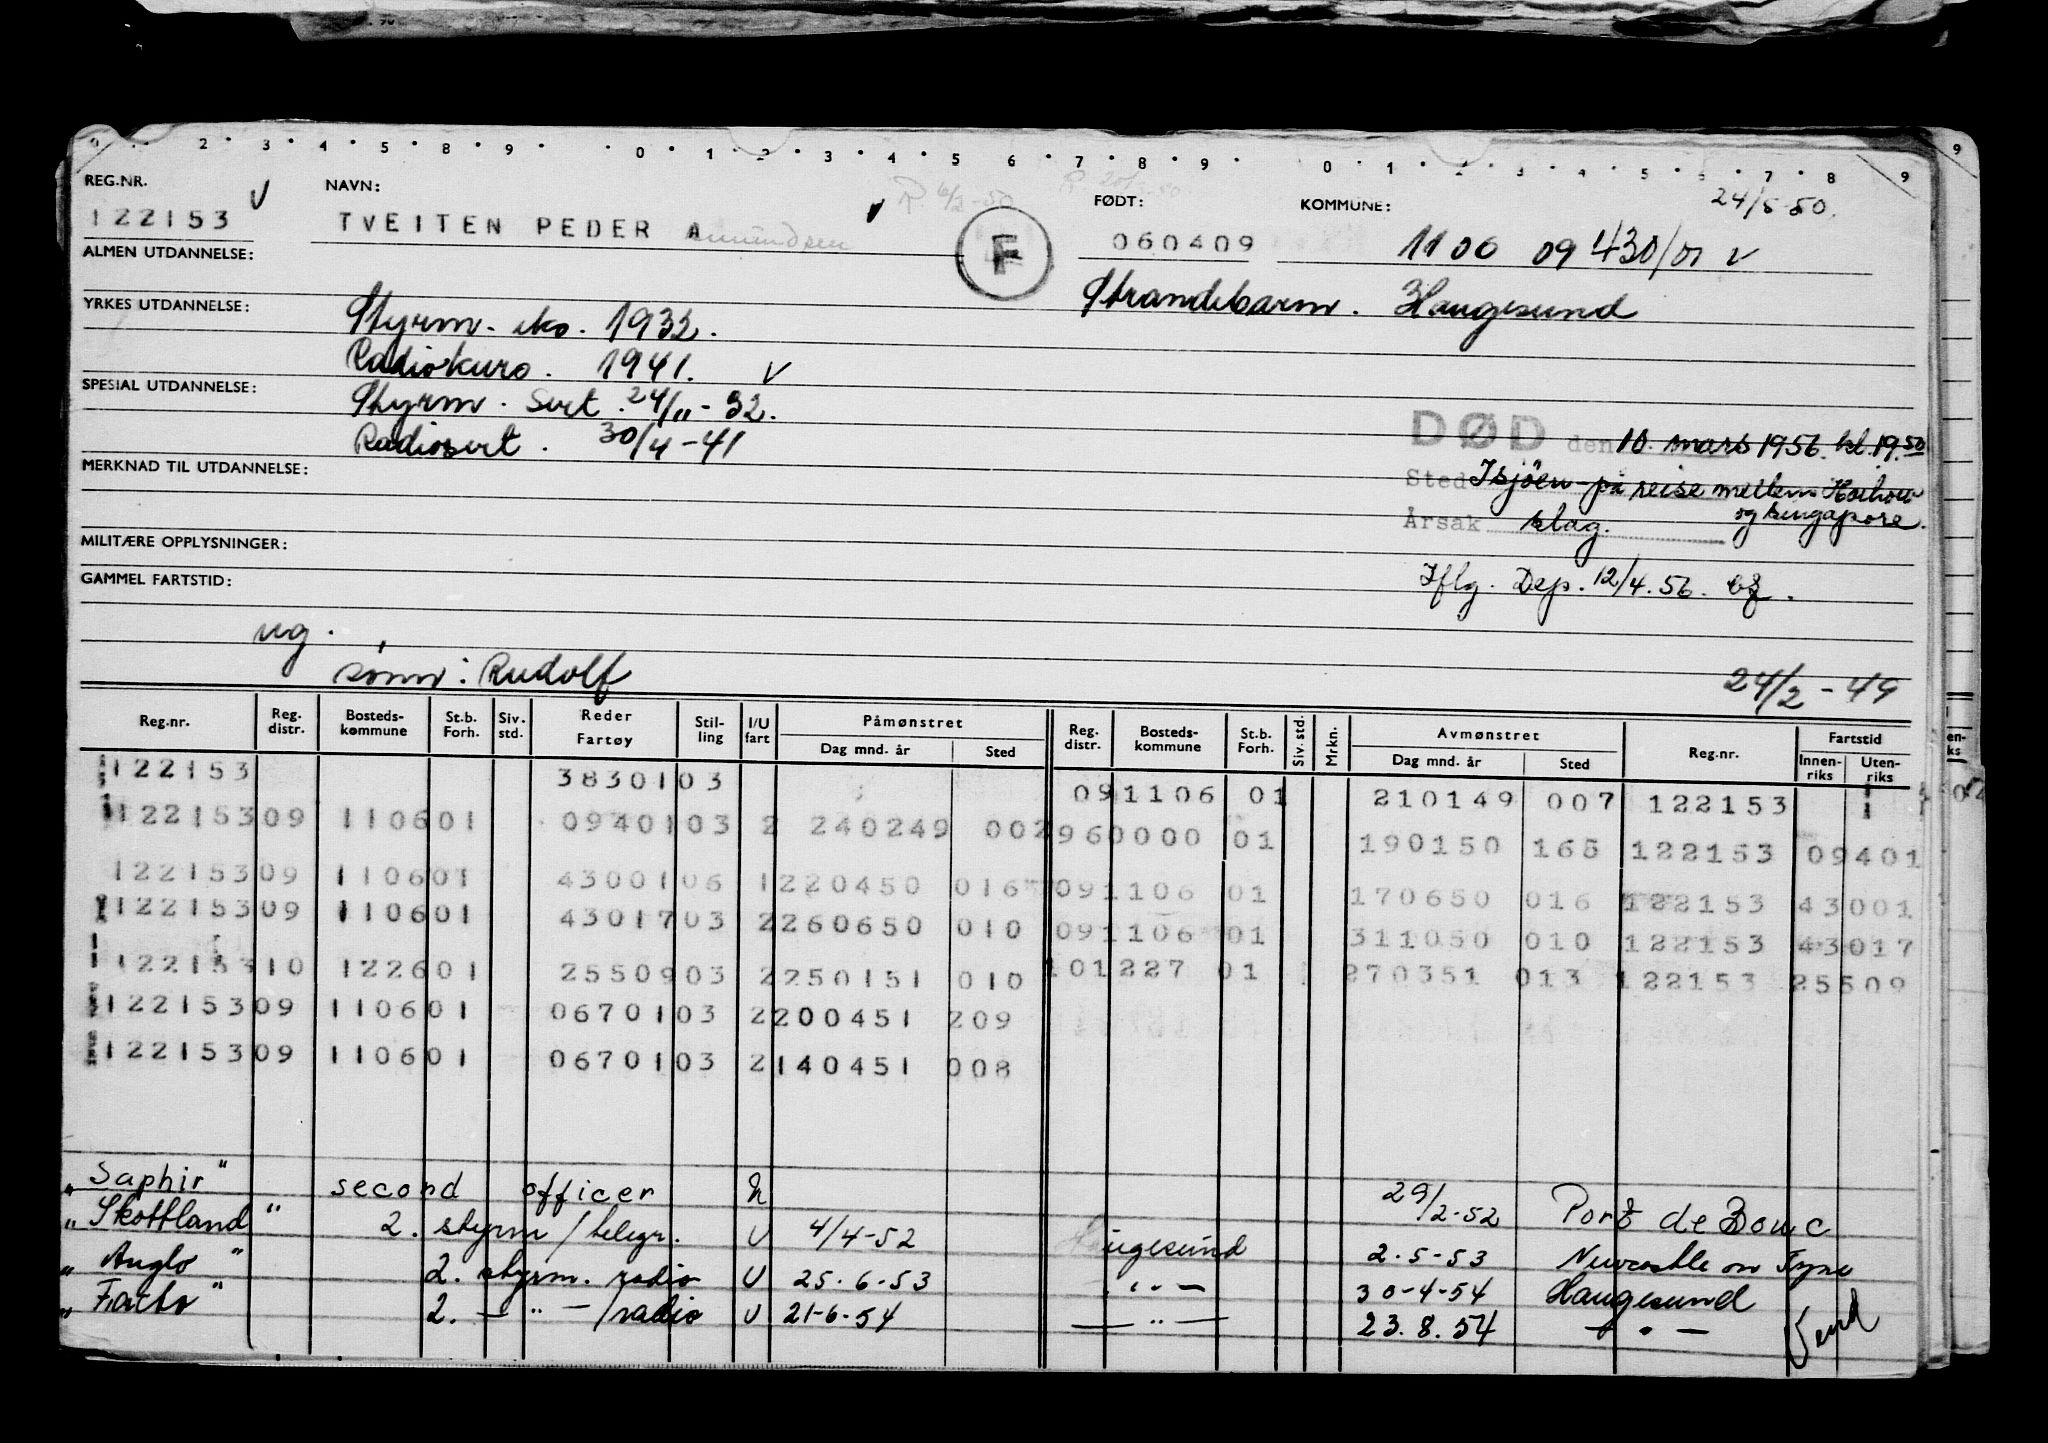 REG.NR. NAVN: FØDT: KOMMUNE: 24/5-50.
122153 TVEITEN PEDER A F 060409 1106 09 430/01 V
ALMEN UTDANNELSE:
Strandebarm. Haugesund
YRKES UTDANNELSE: Styrm. sko. 1932.
Radiokurs. 1941. V
SPESIAL UTDANNELSE: Styrm. Sert. 24/11-32.
Radiosert. 30/4-41
DØD den 10. mars 1956. kl. 19.50
MERKNAD TIL UTDANNELSE:
Sted I sjöen på reise mellem Hoihow
og Singapore.
Årsak slag.
MILITÆRE OPPLYSNINGER:
GAMMEL FARTSTID:
Iflg. Dep. 12/4.56.
ug.
sønn: Rudolf
24/2-49
Reg.nr. Reg. distr. Bosteds-kommune St.b. Forh. Siv. std. Reder Fartøy Stil-ling I/U fart Påmønstret Dag mnd. år Sted Reg. distr. Bosteds-kommune St.b. Forh. Siv. std. Mrkn. Avmønstret Dag mnd. år Sted Reg.nr. Fartstid Innen-riks Uten-riks
122153 38301 03 09 1106 01 210149 007 122153
122153 09 1106 01 09401 03 2 240249 002 96 0000 01 190150 165 122153 09401
122153 09 1106 01 43001 06 1 220450 016 09 1106 01 170650 016 122153 43001
122153 09 1106 01 43017 03 2 260650 010 09 1106 01 311050 010 122153 43017
122153 10 1226 01 25509 03 2 250151 010 10 1227 01 270351 013 122153 25509
122153 09 1106 01 06701 03 2 200451 209
122153 09 1106 01 06701 03 2 140451 008
"Saphir" second officer 29/2-52 Port de Bouc
"Skottland" 2. styrm/telegr. U 4/4-52 Haugesund 2.5-53 Newcastle on Tyne
"Anglo" 2. styrm. radio U 25.6.53 — " — 30-4-54 Haugesund
"Farto" 2. — " — /radio U 21-6-54 — " — 23.8.54 — " — Vend